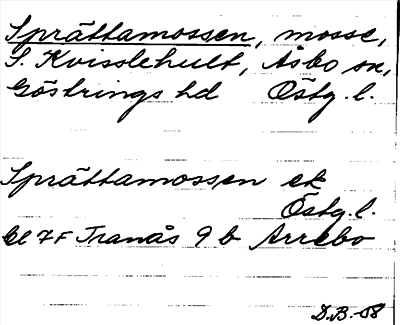 Sprättamossen, mosse,
S. Kvisslehult, Åsbo sn,
Göstrings hd Östg. l.
Sprättamossen ek
Östg. l.
Bl 7F Tranås 9 b Arrebo
D.B. -58